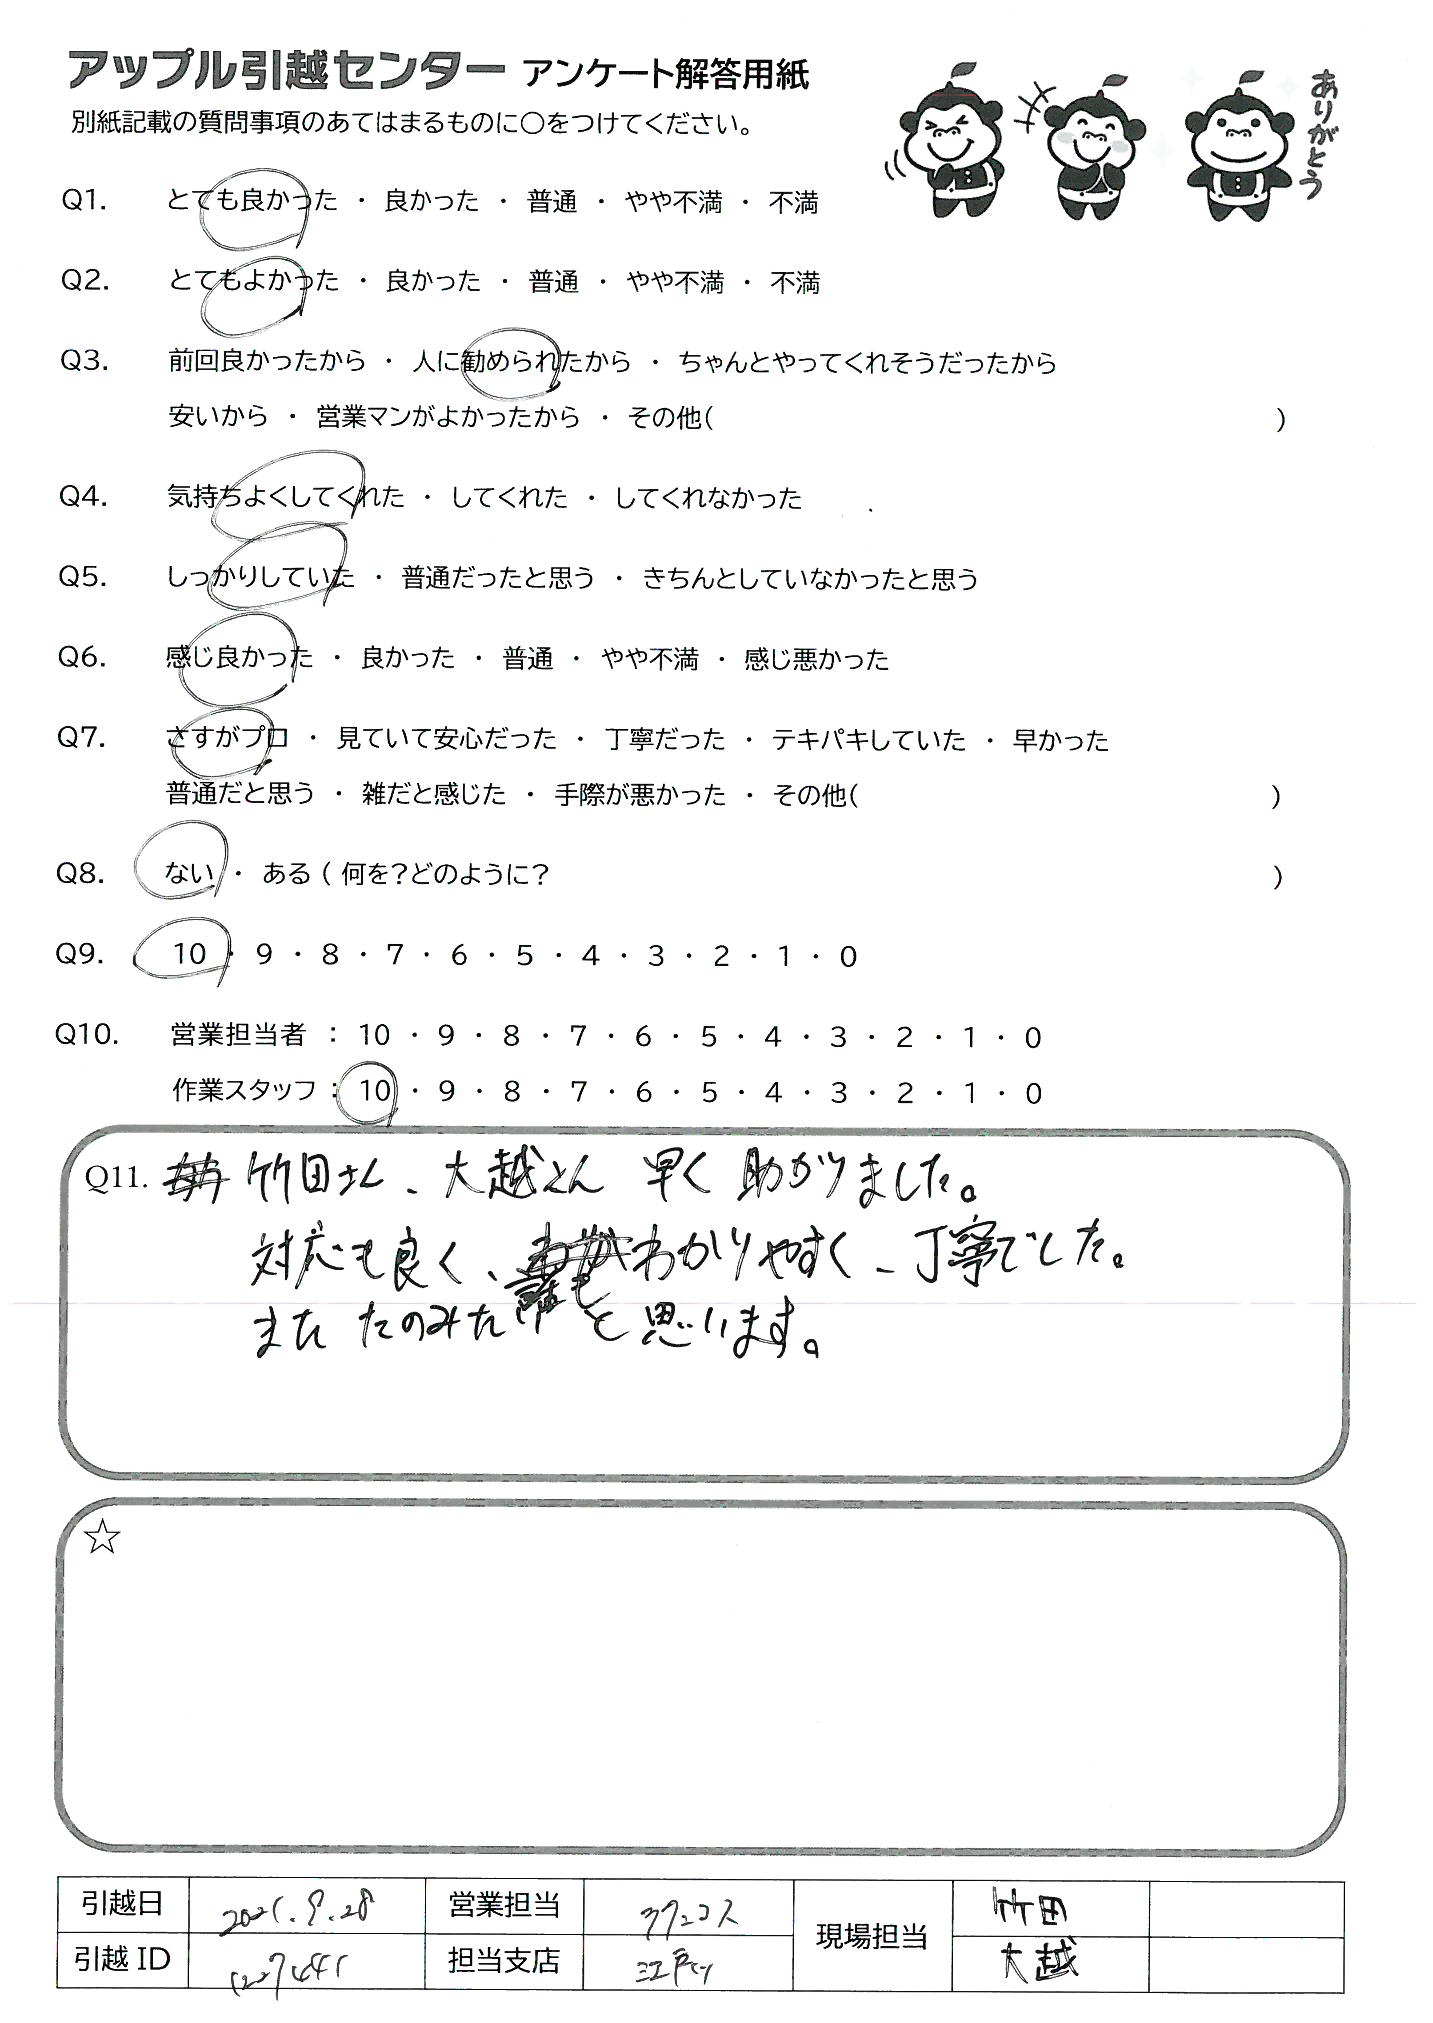 アップル引越センター アンケート解答用紙
別紙記載の質問事項のあてはまるものに○をつけてください。
ありがとう
Q1. とても良かった ・ 良かった ・ 普通 ・ やや不満 ・ 不満
Q2. とてもよかった ・ 良かった ・ 普通 ・ やや不満 ・ 不満
Q3. 前回良かったから ・ 人に勧められたから ・ ちゃんとやってくれそうだったから
安いから ・ 営業マンがよかったから ・ その他( )
Q4. 気持ちよくしてくれた ・ してくれた ・ してくれなかった
Q5. しっかりしていた ・ 普通だったと思う ・ きちんとしていなかったと思う
Q6. 感じ良かった ・ 良かった ・ 普通 ・ やや不満 ・ 感じ悪かった
Q7. さすがプロ ・ 見ていて安心だった ・ 丁寧だった ・ テキパキしていた ・ 早かった
普通だと思う ・ 雑だと感じた ・ 手際が悪かった ・ その他( )
Q8. ない ・ ある ( 何を?どのように? )
Q9. 10 ・ 9 ・ 8 ・ 7 ・ 6 ・ 5 ・ 4 ・ 3 ・ 2 ・ 1 ・ 0
Q10. 営業担当者 : 10 ・ 9 ・ 8 ・ 7 ・ 6 ・ 5 ・ 4 ・ 3 ・ 2 ・ 1 ・ 0
作業スタッフ : 10 ・ 9 ・ 8 ・ 7 ・ 6 ・ 5 ・ 4 ・ 3 ・ 2 ・ 1 ・ 0
Q11. 竹田さん、大越さん 早く 助かりました。
対応も良く、わかりやすく、丁寧でした。
また たのみたいと思います。
☆
引越日 営業担当 現場担当 竹田
引越ID 担当支店 大越